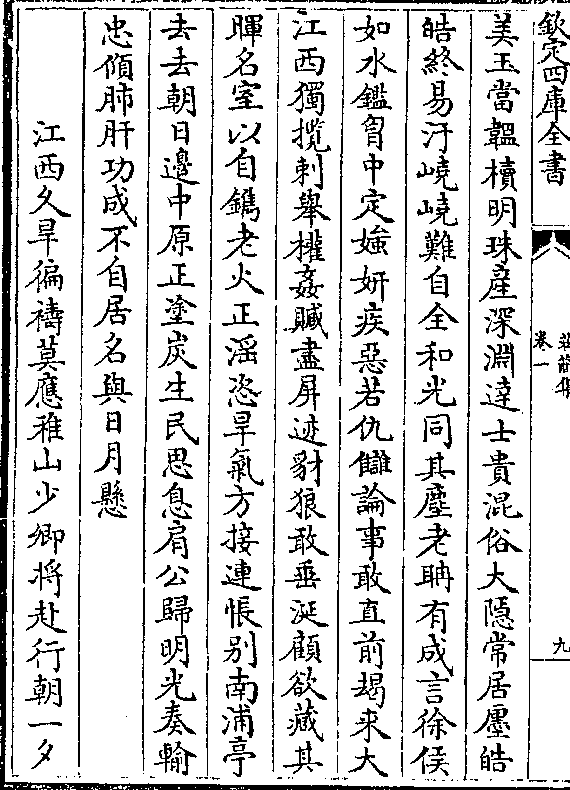 欽定四庫全書
卷一
九
美玉當韞櫝明珠產深淵達士貴混俗大隱常居廛皓
皓終易汙嶢嶢難自全和光同其塵老聃有成言徐侯
如水鑑胷中定媸妍疾惡若仇讎論事敢直前朅来大
江西獨攬刺舉權姦贓盡屏迹豺狼敢垂涎顧欲藏其
暉名室以自鐫老火正滛恣旱氣方接連悵别南浦亭
去去朝日邊中原正塗炭生民思息肩公歸明光奏輸
忠傾肺肝功成不自居名與日月懸
江西久旱徧禱莫應稚山少卿将赴行朝一夕